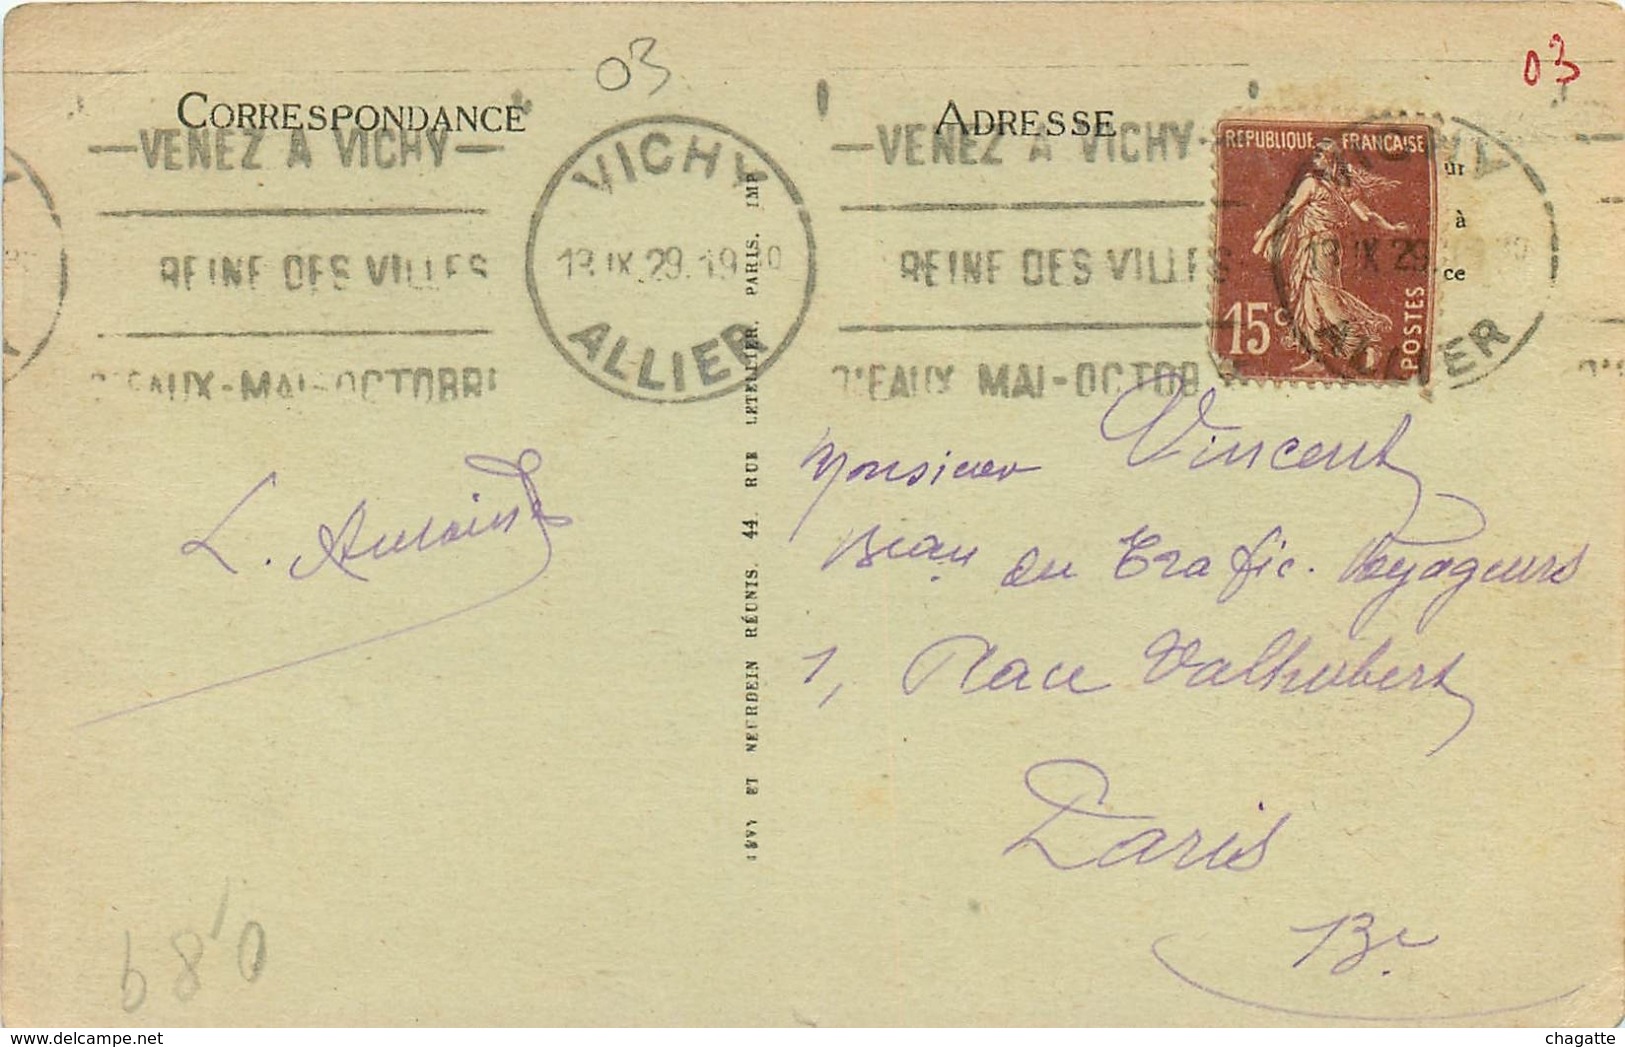 03
03
CORRESPONDANCE
ADRESSE
VENEZ A VICHY
REINE DES VILLES
D'EAUX-MAI-OCTOBRE
VICHY
13.IX.29.19
ALLIER
VENEZ A VICHY
REINE DES VILLES
D'EAUX MAI-OCTOB
REPUBLIQUE FRANÇAISE
15c
POSTES
13 IX 29
ur
à
ce
LÉVY ET NEURDEIN RÉUNIS. 44. RUE LETELLIER, PARIS. IMP
L.
Monsieur Vincent
Beau du Trafic. Voyageurs
1, Place Valhubert
Paris
13e
0,89
delcampe.net
chagatte